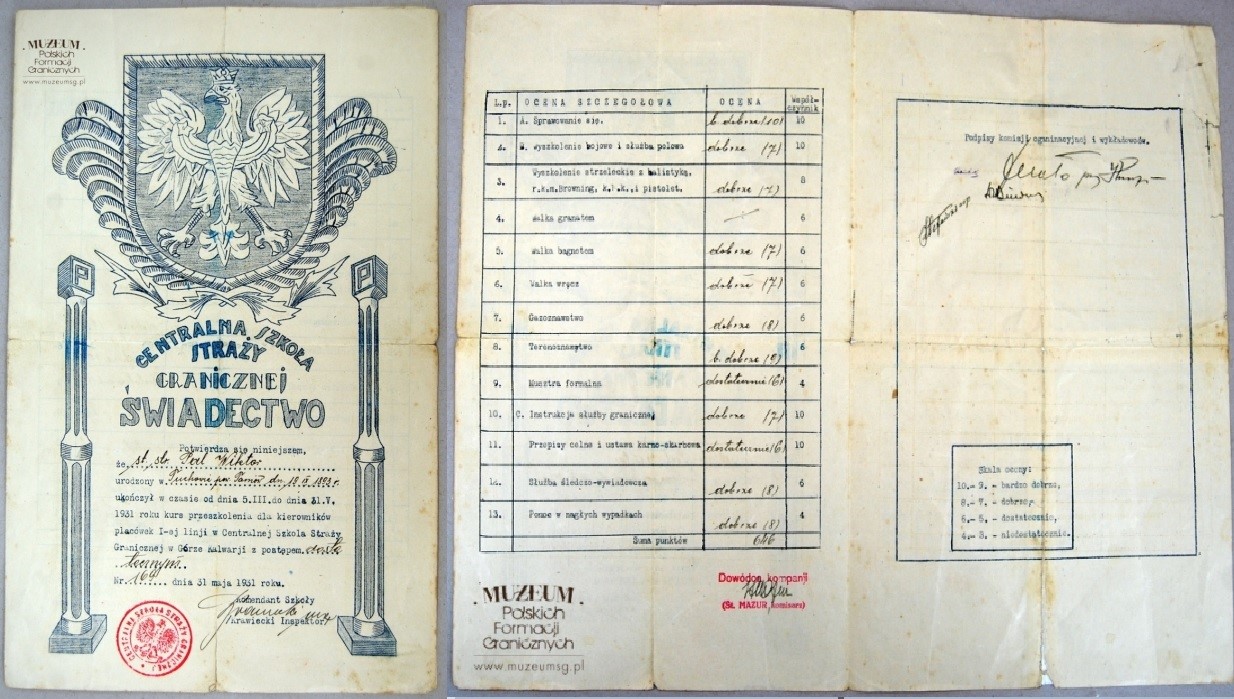 MUZEUM
Polskich
Formacji
Granicznych
www.muzeumsg.pl
P P
CENTRALNA SZKOŁA
STRAŻY
GRANICZNEJ
ŚWIADECTWO
Potwierdza się niniejszem,
że st. str. Pal Wiktor
urodzony w Puchonie pow. dn. 18 IX 1898 r.
ukończył w czasie od dnia 5.III.do dnia 31.V.
1931 roku kurs przeszkolenia dla kierowników
placówek I-ej linji w Centralnej Szkole Straży
Granicznej w Górze Kalwarji z postępem dosta
tecznym.
Nr. 169 dnia 31 maja 1931 roku.
Komendant Szkoły
Karawiecki Inspektor
CENTRALNA SZKOŁA STRAŻY GRANICZNEJ
L.p. OCENA SZCZEGÓŁOWA OCENA Współczynnik
1. A. Sprawowanie się. b. dobrze (10) 10
2. B. Wyszkolenie bojowe i służba polowa dobrze (7) 10
3. Wyszkolenie strzeleckie z balistyką,
r.k.m.Browning, k.b.k., i pistolet. dobrze (7) 8
4. Walka granatem 6
5. Walka bagnetem dobrze (7) 6
6. Walka wręcz dobrze (7) 6
7. Gazoznawstwo dobrze (8) 6
8. Terenoznawstwo b. dobrze (9) 6
9. Musztra formalna dostatecznie (6) 4
10. C. Instrukcja służby granicznej dobrze (7) 10
11. Przepisy celne i ustawa karno-skarbowa dostatecznie (6) 10
12. Służba śledczo-wywiadowcza dobrze (8) 6
13. Pomoc w nagłych wypadkach dobrze (8) 4
Suma punktów 646
Dowódca kompanji
(St. MAZUR, komisarz)
MUZEUM
Polskich
Formacji
Granicznych
www.muzeumsg.pl
Podpisy komisji egzaminacyjnej i wykładowców.
Skala oceny:
10.- 9. - bardzo dobrze,
8.- 7. - dobrze,
6.- 5. - dostatecznie,
4.- 3. - niedostatecznie.